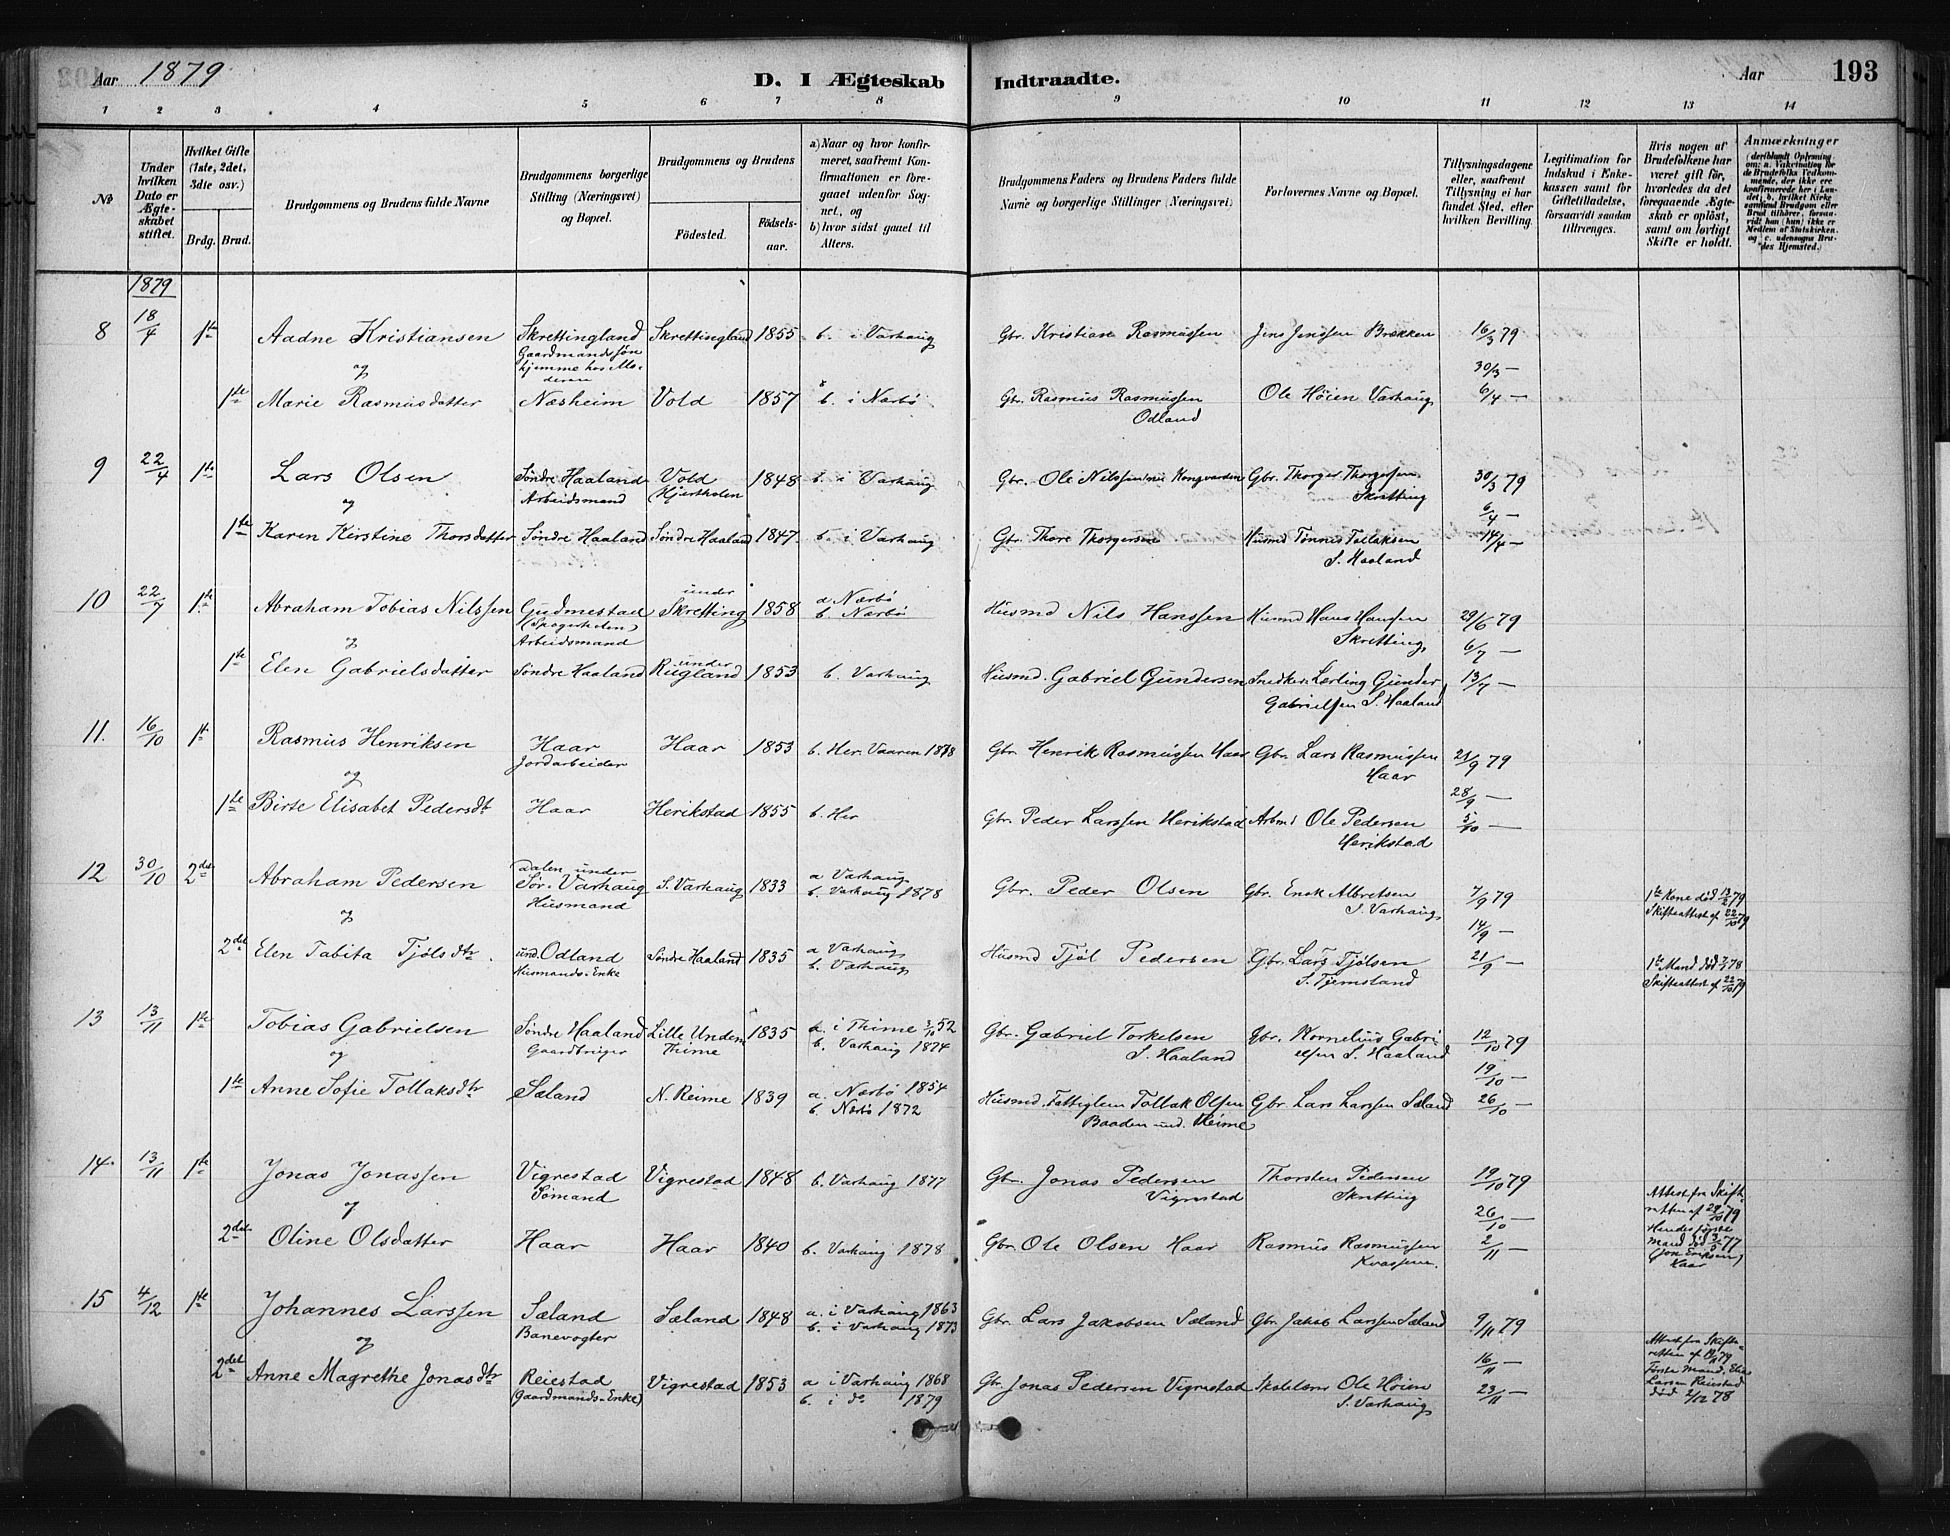 Aar 1879 D. I Ægteskab Indtraadte. Aar 193
1 2 3 4 5 6 7 8 9 10 11 12 13 14
No
Under hvilken Dato er Ægteskabet stiftet.
Hvilket Gifte (1ste, 2det, 3die osv.)
Brdg. Brud.
Brudgommens og Brudens fulde Navne
Brudgommens borgerlige Stilling (Næringsvei) og Bopæl.
Brudgommens og Brudens
Fødested. Fødsels-aar.
a) Naar og hvor konfirmeret, saafremt Konfirmationen er foregaaet udenfor Sognet, og
b) hvor sidst gaaet til Alters.
Brudgommens Faders og Brudens Faders fulde Navne og borgerlige Stillinger (Næringsvei)
Forlovernes Navne og Bopæl.
Tillysningsdagene eller, saafremt Tillysning ei har fundet Sted, efter hvilken Bevilling.
Legitimation for Indskud i Enkekassen samt for Giftetilladelse, forsaavidt saadan tiltrænges.
Hvis nogen af Brudefolkene har været gift før, hvorledes da det foregaaende Ægteskab er opløst, samt om lovligt Skifte er holdt.
Anmærkninger
1879
8 18/4 1ste Aadne Kristiansen Skrettingland Skrettingland 1855 b. i Varhaug Gbr. Kristian Rasmussen Jens Jenssen Brækken 16/3 79
Gaardmands søn
hjemme hos Mo-
deren
og 30/3 —
1ste Marie Rasmusdatter Næsheim Vold 1857 b. i Nærbø Gbr. Rasmus Rasmussen Ole Høien Varhaug 6/4 —
Odland
9 22/4 1ste Lars Olsen Søndre Haaland Vold 1848 b. i Varhaug Gbr. Ole Nilssen Gbr. Thorger Thorgersen 30/3 79
og Arbeidsmand Skretting 6/4 —
1ste Karen Kirstine Thorsdatter Søndre Haaland Søndre Haaland 1847 b. i Varhaug Gbr. Thore Thorgersen Husmd Tønnes Tollaksen 14/4 —
S. Haaland
10 22/7 1ste Abraham Tobias Nilssen Gudmestad under Skretting 1858 a Nærbø Husmd Nils Hanssen Husmd Hans Hanssen 29/6 79
b. Nærbø
og Arbeidsmand Skretting 6/7 —
1ste Elen Gabrielsdatter Søndre Haaland under Rugland 1853 b. Varhaug Husmd. Gabriel Gundersen Snedker Lærling Gunder 13/7 —
Gabrielsen S. Haaland
11. 16/10 1ste Rasmus Henriksen Haar Haar 1853 b. Her. Vaaren 1878 Gbr. Henrik Rasmussen Haar Gbr. Lars Rasmussen 21/9 79
Jordarbeider Haar
og 28/9 —
1ste Birte Elisabet Pedersdtr Haar Herikstad 1855 b. Her Gbr. Peder Larssen Herikstad Arbmd Ole Pedersen 5/10 —
Herikstad
12 30/10 2det Abraham Pedersen Dalen under Sør-Varhaug S. Varhaug 1833 a Varhaug Gbr. Peder Olsen Gbr. Enok Albretsen 7/9 79 1ste Kone død 13/2 79
Husmand b. Varhaug 1878 S. Varhaug Skifteattest af 22/10 79
og 14/9 —
2det Elen Tabita Tjølsdtr. und. Odland Søndre Haaland 1835 a Varhaug Husmd Tjøl Pedersen Gbr. Lars Tjølsen 21/9 — 1ste Mand død 7/1 78
Husmands-Enke b. Varhaug S. Tjemsland Skifteattest af 22/10 79
13 13/11 1ste Tobias Gabrielsen Søndre Haaland Lille Undem 1835 a. i Thime 3/10 52 Gbr. Gabriel Torkelsen Gbr. Kornelius Gabri- 12/10 79
og Gaardbruger Thime b. Varhaug 1874 S. Haaland elsen S. Haaland
19/10 —
1ste Anne Sofie Tollaksdtr Sæland N. Reime 1839 a. Nærbø 1854 Husmd. Fattiglem Tollak Olsen Gbr. Lars Larssen Sæland 26/10 —
b. Nærbø 1872 Baaden und. Reime
14. 13/11 1ste Jonas Jonassen Vigrestad Vigrestad 1848 b. Varhaug 1877 Gbr. Jonas Pedersen Thorsten Pedersen 19/10 79
og Sømand Vigrestad Skretting Attest fra Skift-
26/10 — retten af 29/10 79
2det Oline Olsdatter Haar Haar 1840 b. Varhaug 1878 Gbr Ole Olsen Haar Rasmus Rasmussen 2/11 — Hendes første
Kvassem. Mand død 3/5 77
(Jon Eriksen)
Haar
15 4/12 1ste Johannes Larssen Sæland Sæland 1848 a. i Varhaug 1863 Gbr. Lars Jakobsen Sæland Gbr. Jakob Larssen Sæland 9/11 79
og Banevogter b. i Varhaug 1873 Attest fra Skifte-
16/11 — retten af 79
2det Anne Magrethe Jonasdtr Reiestad Vigrestad 1853 a i Varhaug 1868 Gbr Jonas Pedersen Vigrestad Skolelærer Ole Høien 23/11 — Første Mand, Elias
(Gaardmands-Enke) b. i do 1879 S. Varhaug Larsen Reiestad
død 2/12 78